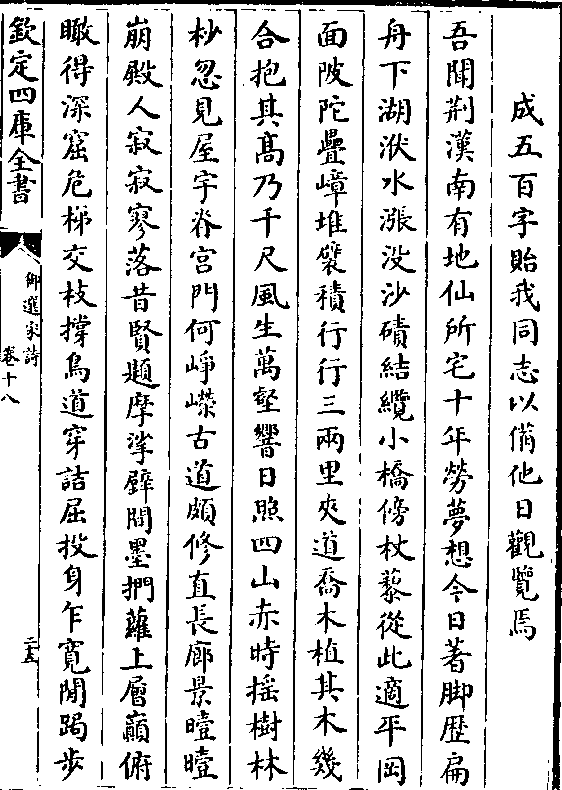 成五百字貽我同志以備他日觀覽焉
吾聞荆漢南有地仙所宅十年勞夢想今日著脚歴扁
舟下湖洑水漲没沙磧結纜小橋傍杖藜從此適平岡
面陂陀疊嶂堆襞積行行三兩里夾道喬木植其木幾
合抱其髙乃千尺風生萬壑響日照四山赤時揺樹林
杪忽見屋宇脊宫門何崢嶸古道頗修直長廊景曀曀
崩殿人寂寂寥落昔賢題摩挲辟間墨捫蘿上層巔俯
瞰得深窟危梯交枝撑鳥道穿詰屈投身乍寛閒跼步
欽定四庫全書
御選宋詩
卷十八
二五